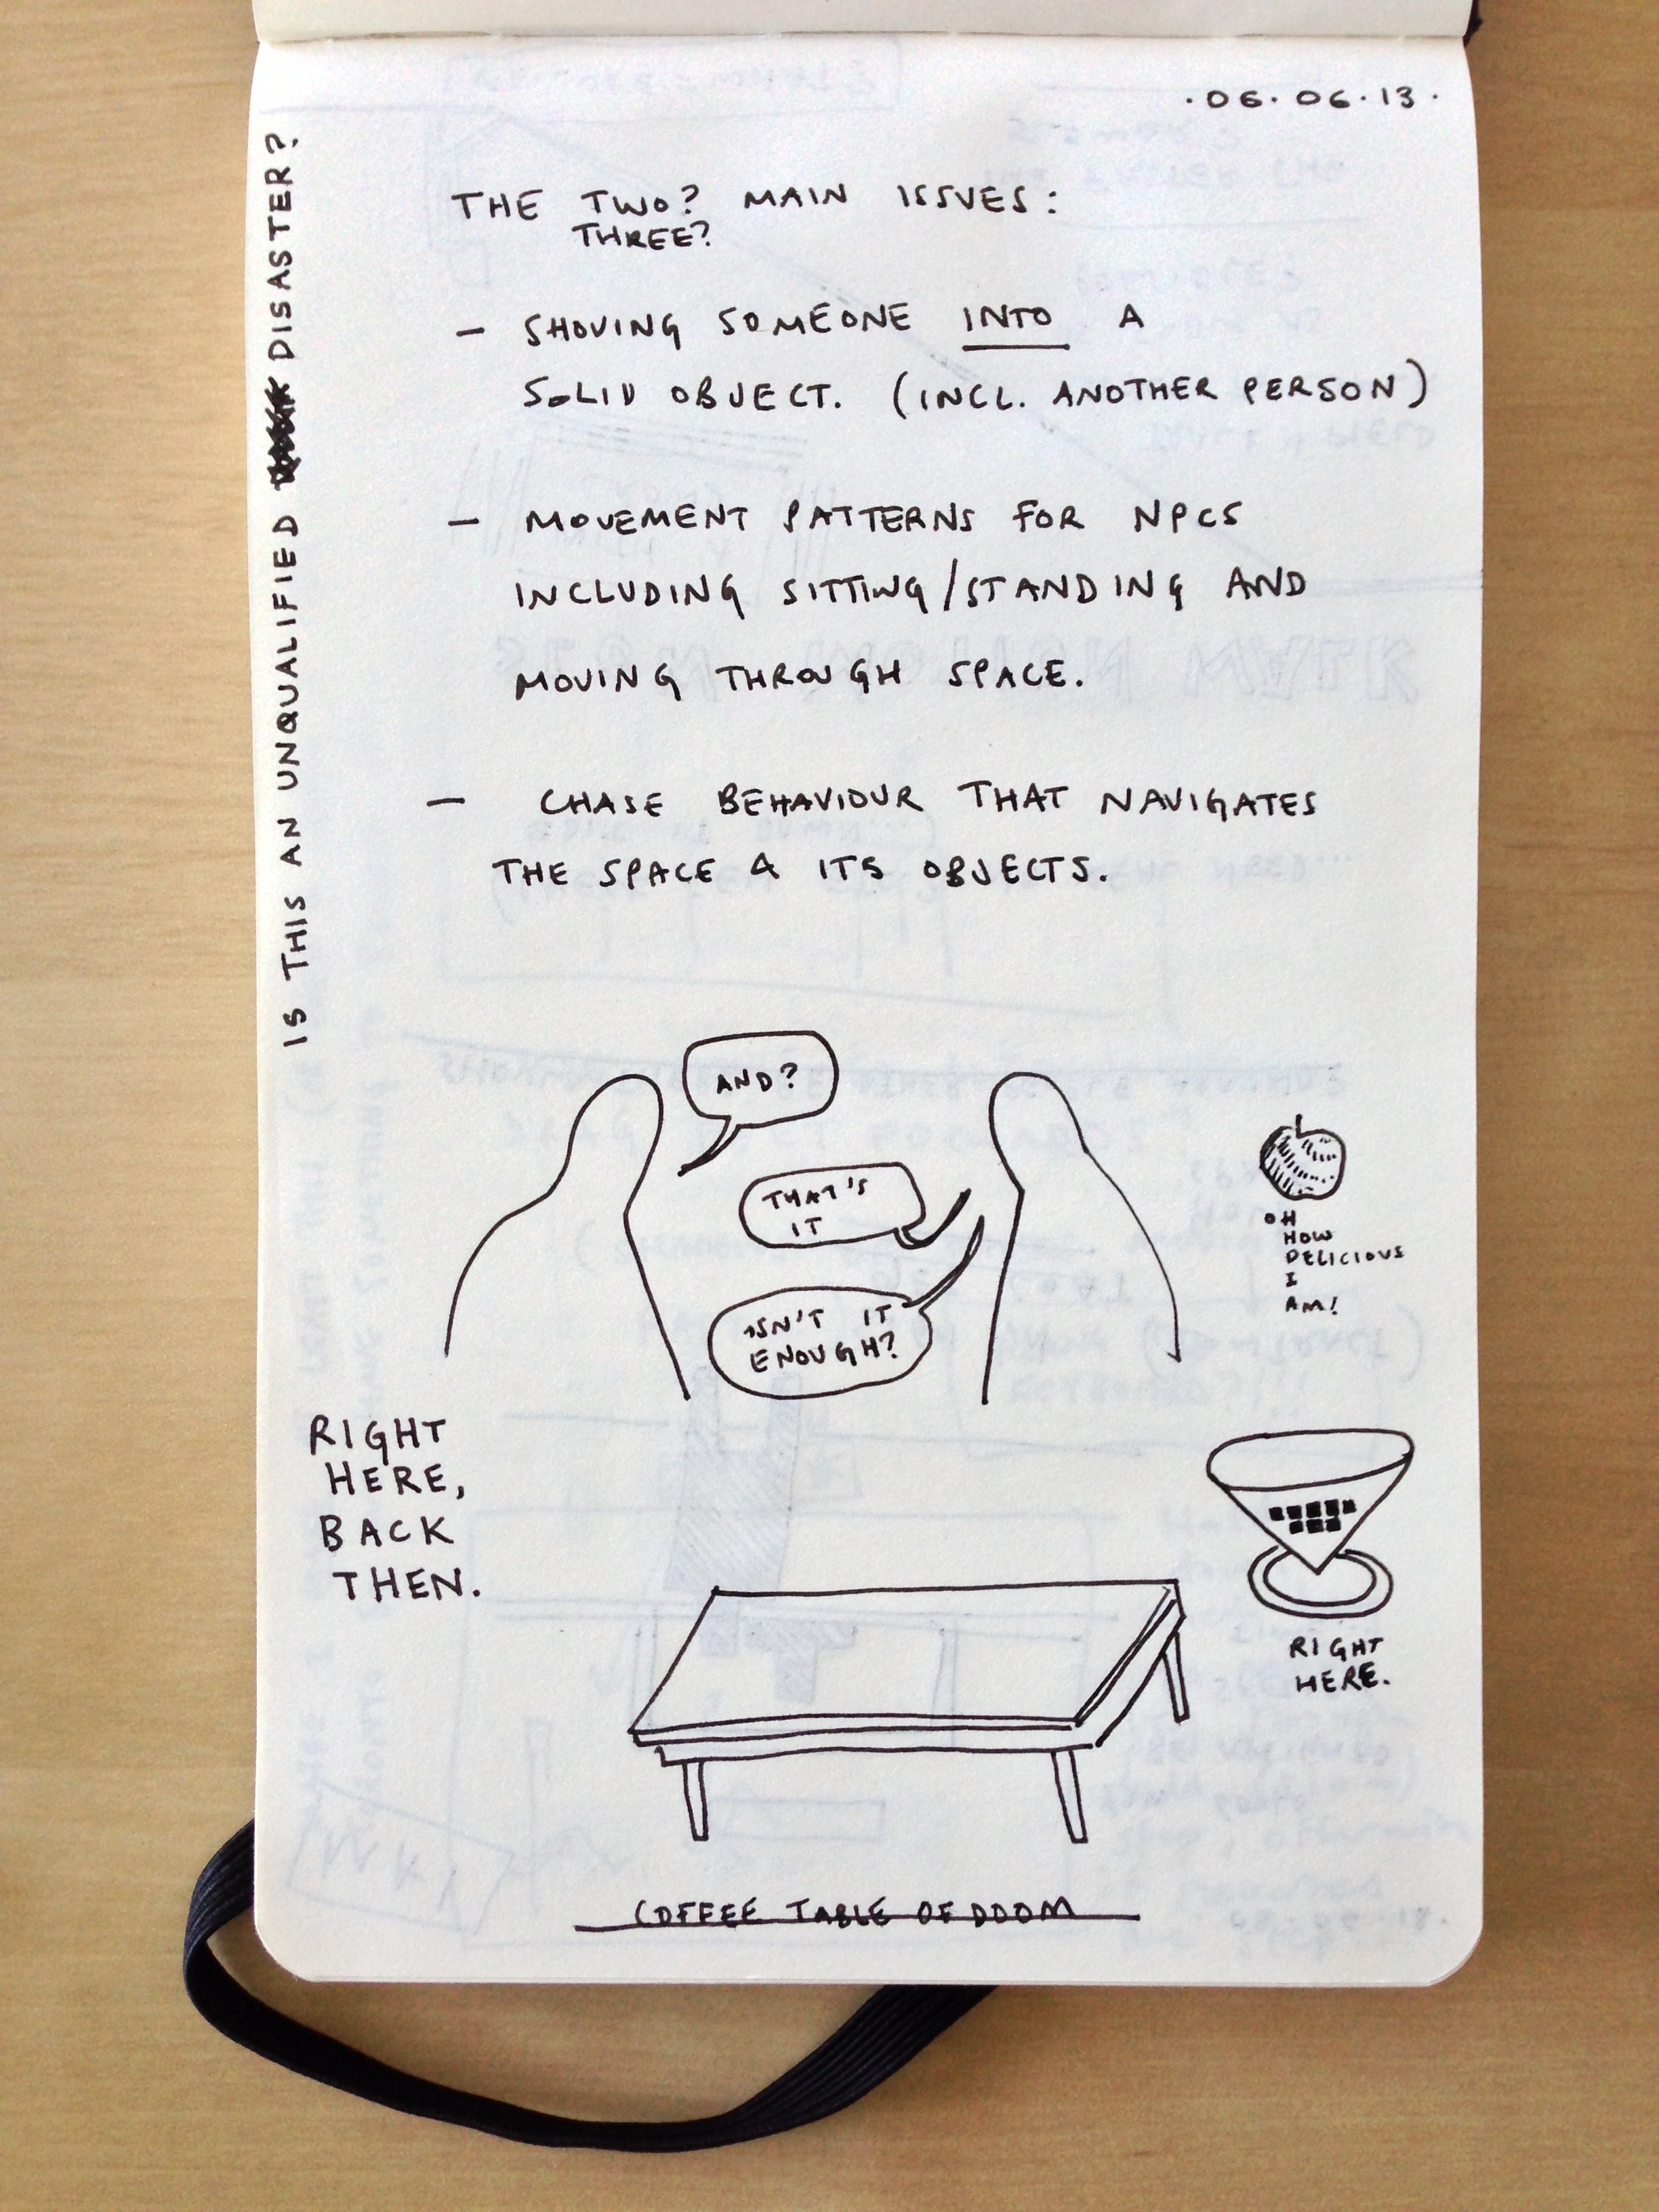 .06.06.13.
IS THIS AN UNQUALIFIED DISASTER?
THE TWO? MAIN ISSUES:
THREE?
- SHOVING SOMEONE INTO A
SOLID OBJECT. (INCL. ANOTHER PERSON)
- MOVEMENT PATTERNS FOR NPCS
INCLUDING SITTING/STANDING AND
MOVING THROUGH SPACE.
- CHASE BEHAVIOUR THAT NAVIGATES
THE SPACE & ITS OBJECTS.
AND?
THAT'S
IT
ISN'T IT
ENOUGH?
OH
HOW
DELICIOUS
I
AM!
RIGHT
HERE,
BACK
THEN.
RIGHT
HERE.
COFFEE TABLE OF DOOM